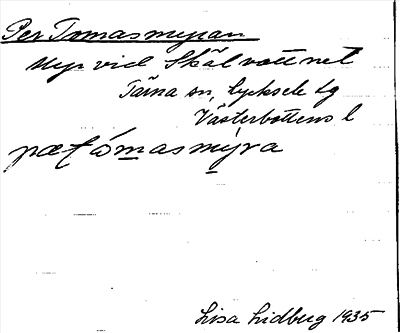 Per Tomasmyran
Myr vid Skålvattnet
Tärna sn, Lycksele lg
Västerbottens l
pæʈ tómasmýra
Lisa Lidberg 1935